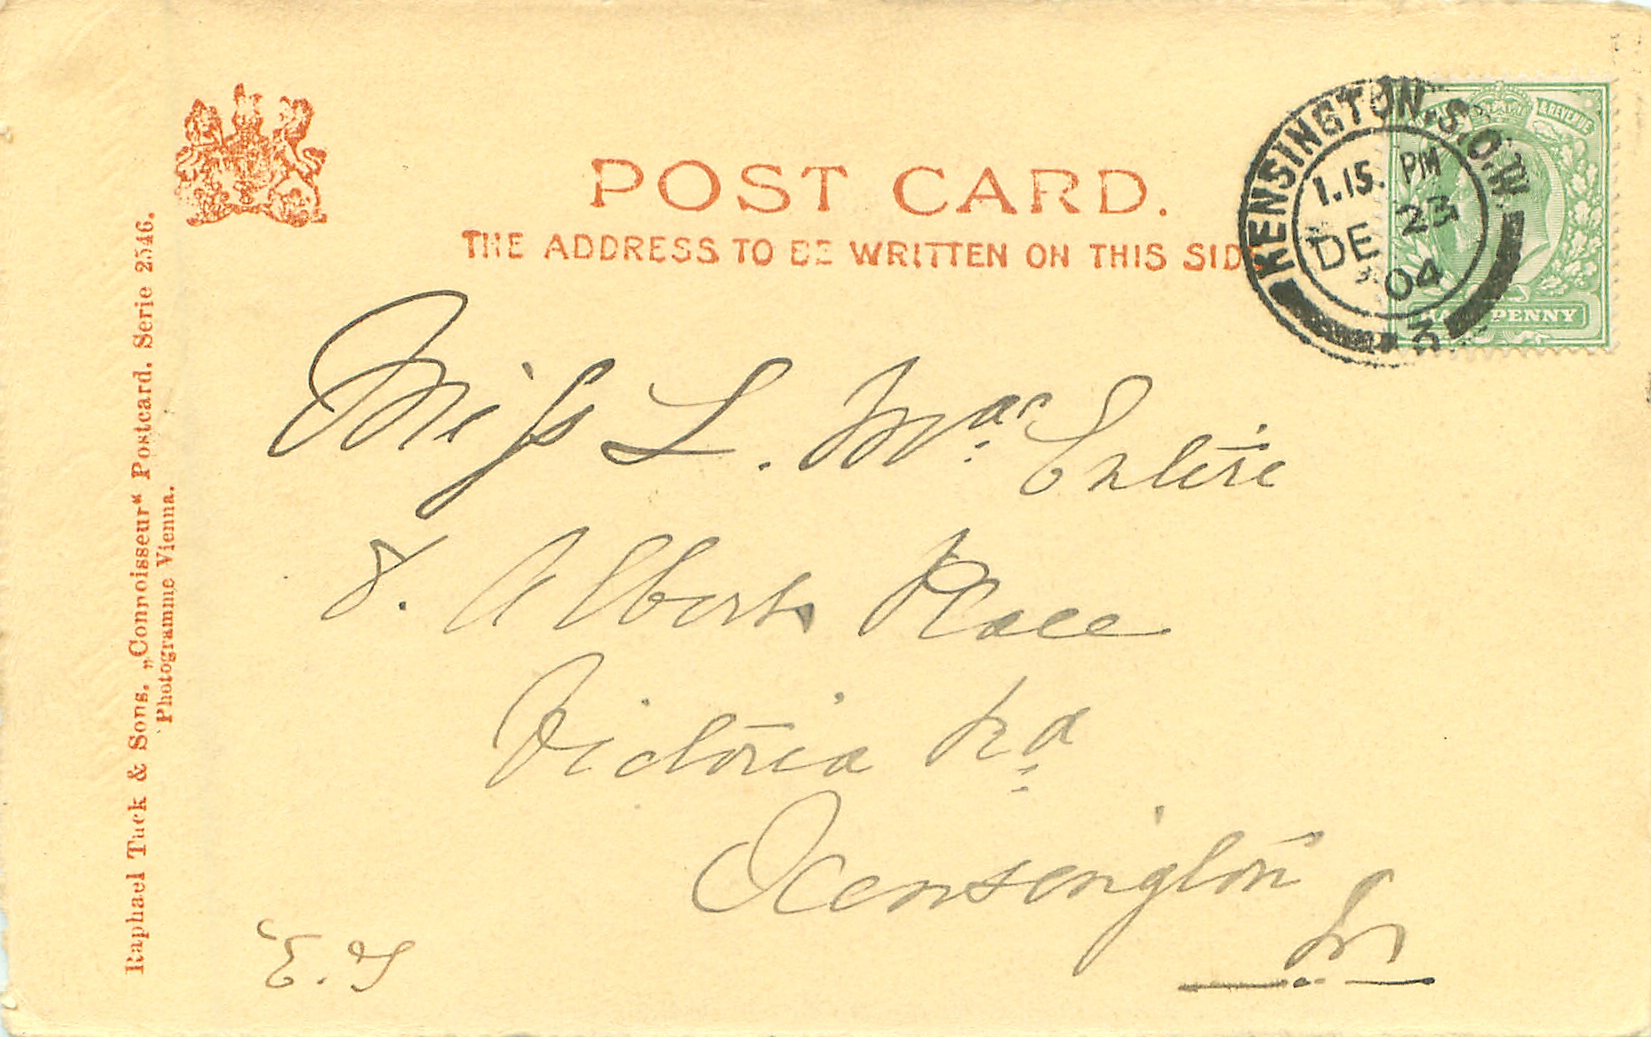 POST CARD.
THE ADDRESS TO BE WRITTEN ON THIS SIDE
KENSINGTON. S.O.W.
1.15. PM
DE 23
04
3
& REVENUE
HALFPENNY
Miss L. Mac Entire
8. Albert Place
Victoria Rd
Kensington
E. G
Raphael Tuck & Sons. „Connoisseur“ Postcard. Serie 2546.
Photogramme Vienna.